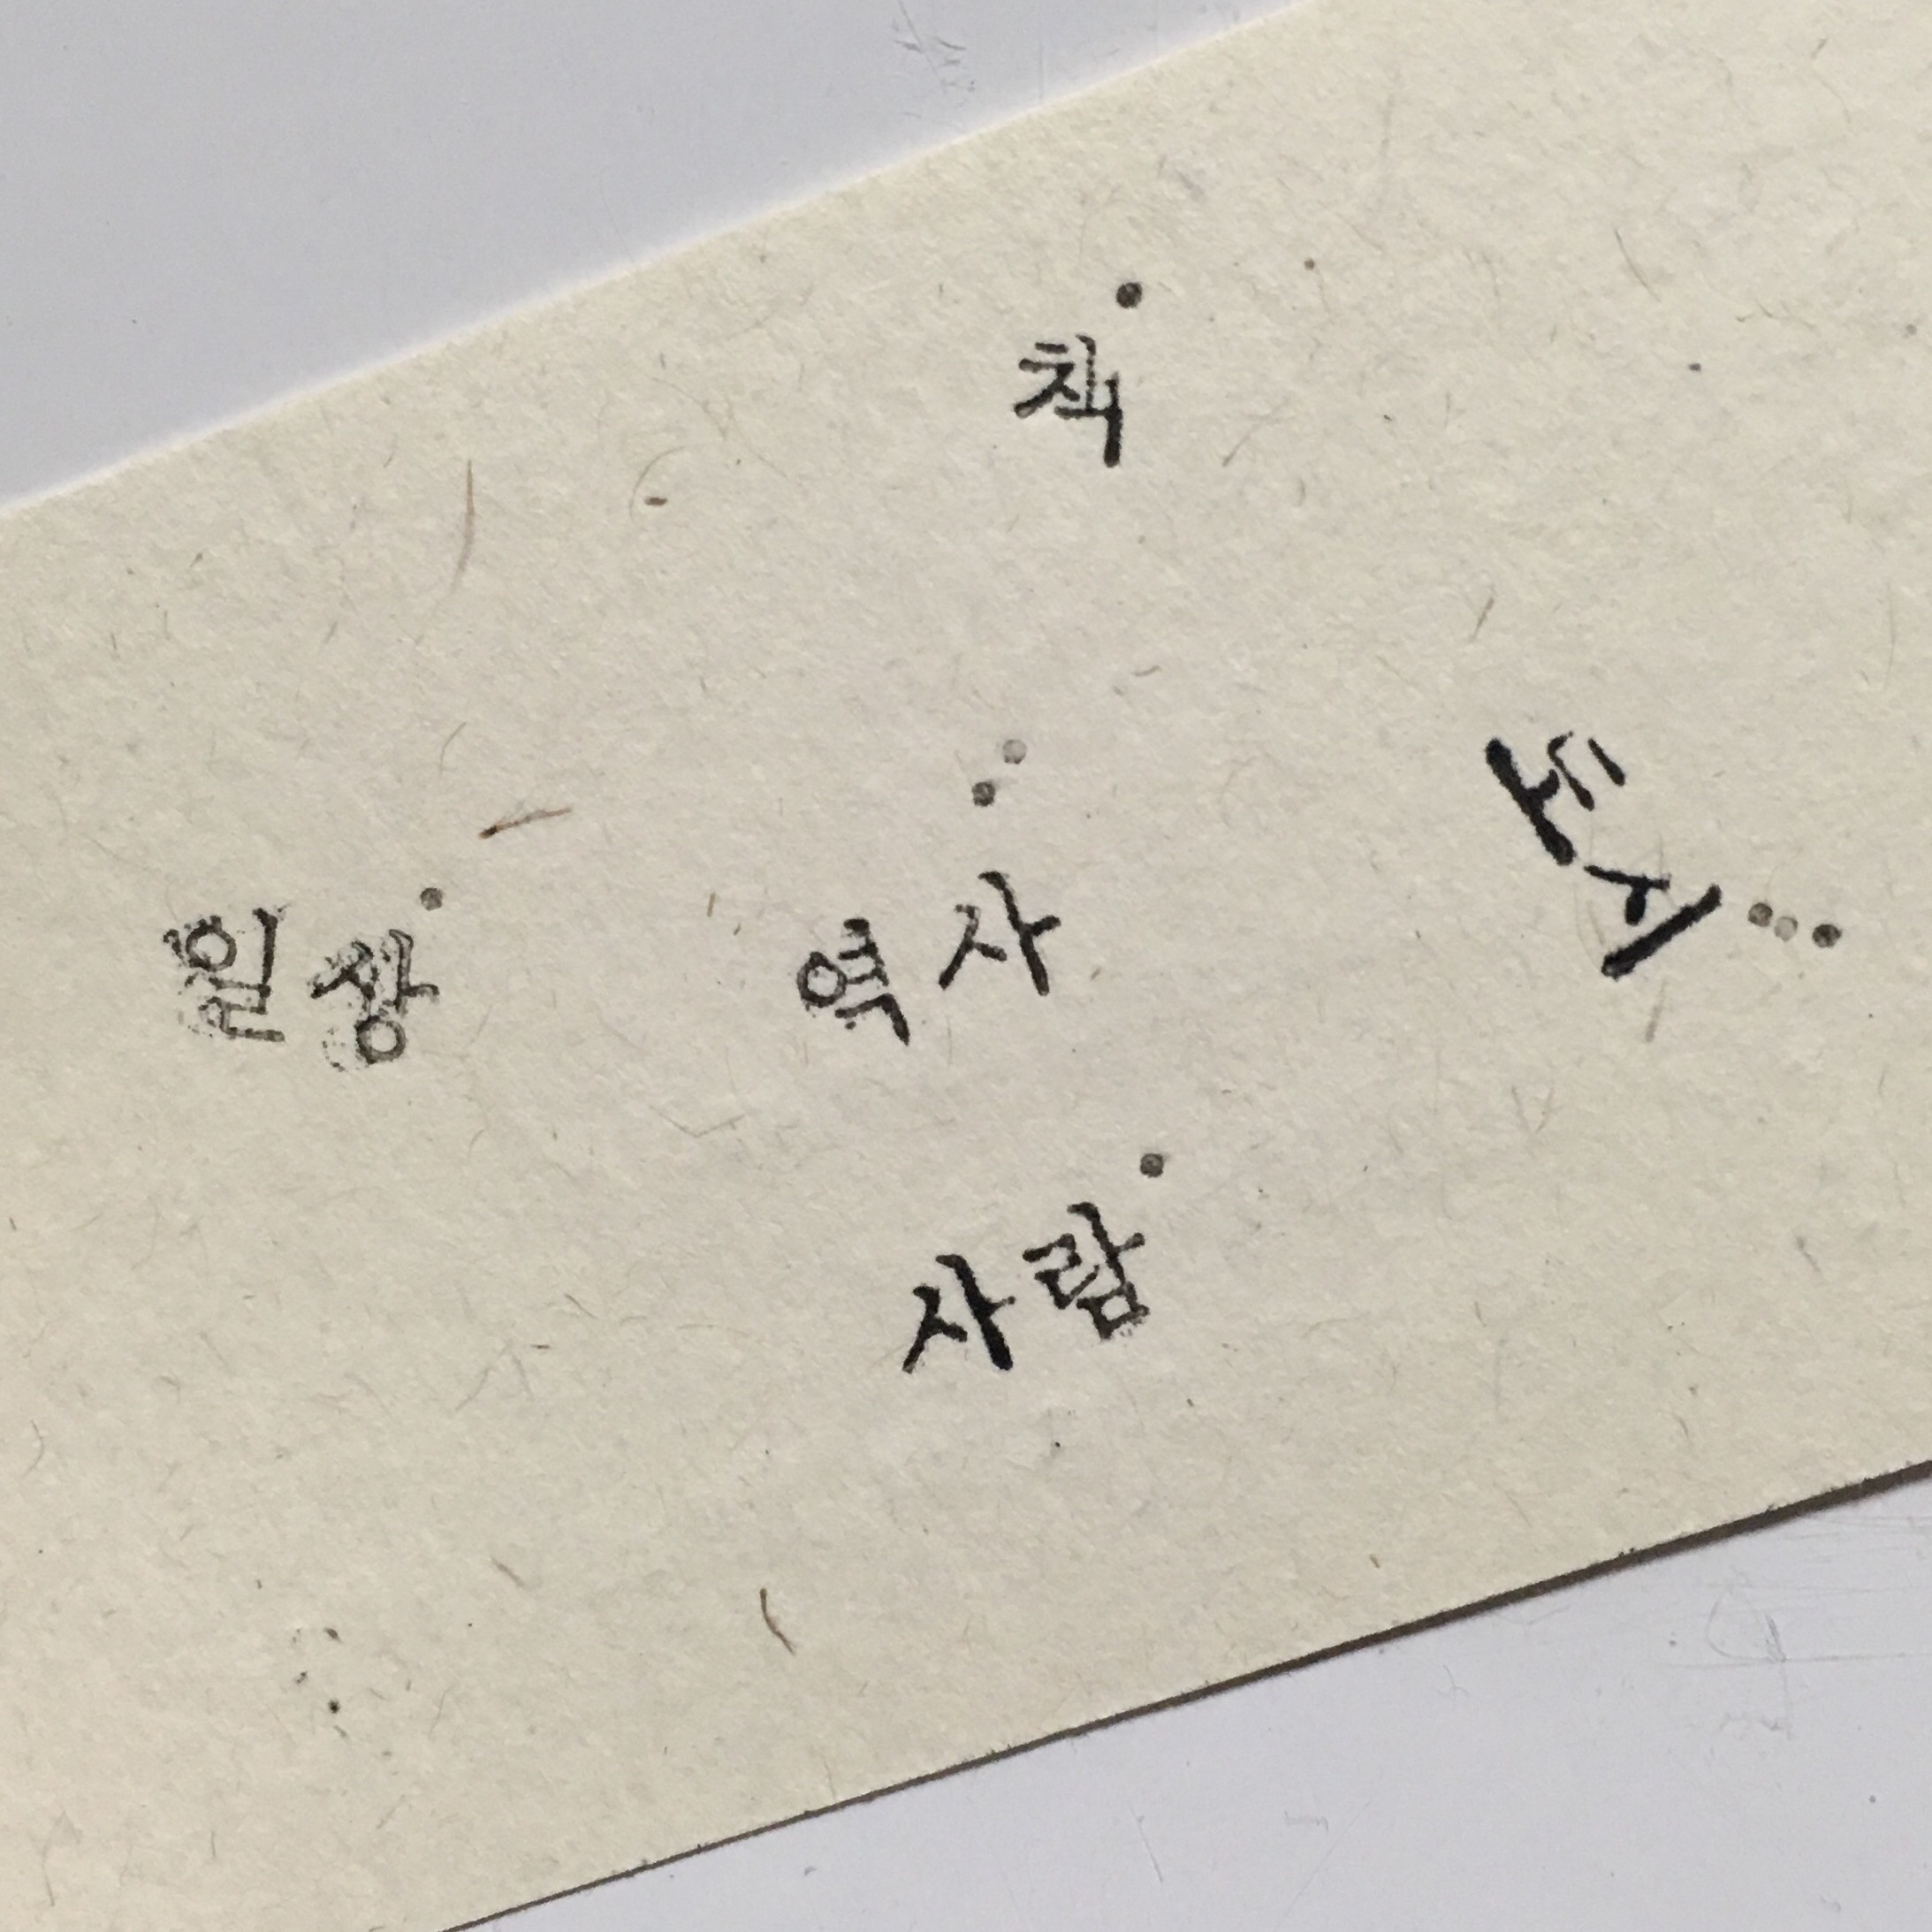 책
일상
역사
도시
사람